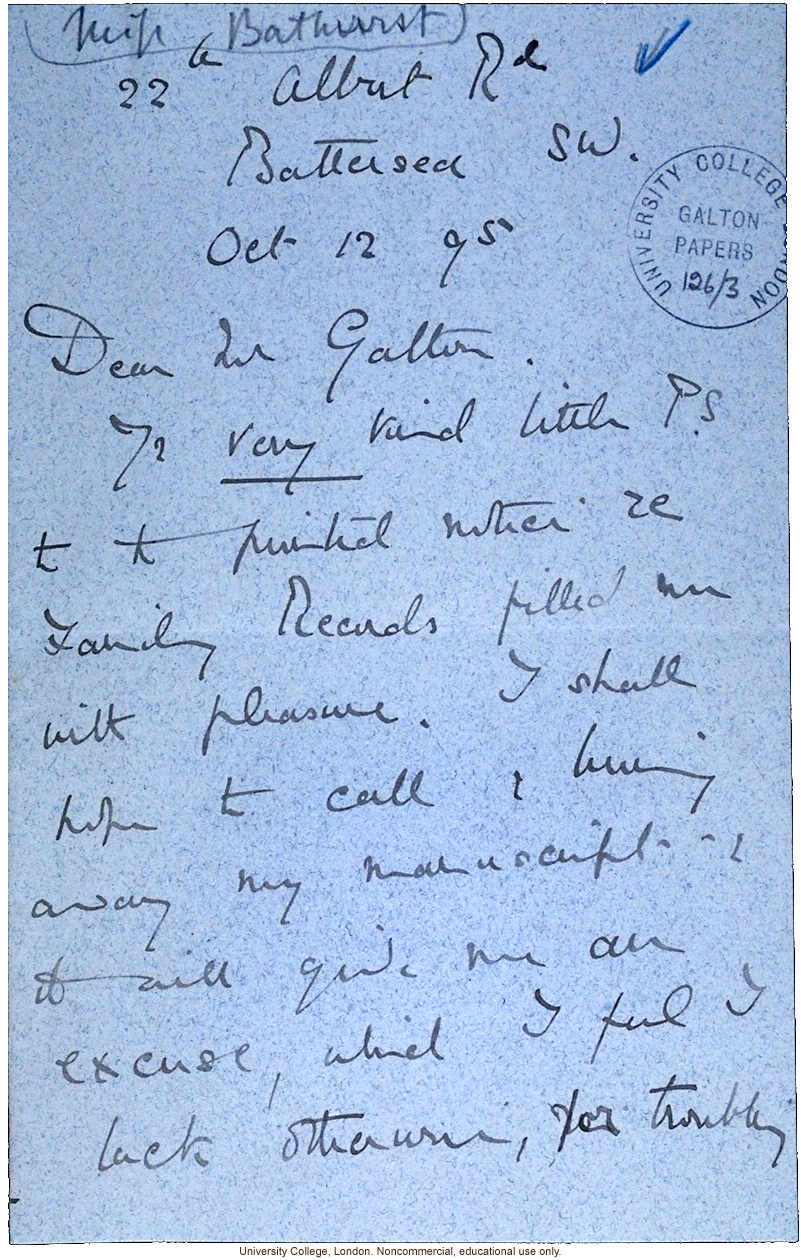 (Miss Bathurst)
22a Albert Rd
Battersea SW.
UNIVERSITY COLLEGE LONDON
GALTON
PAPERS
126/3
Oct 12 95
Dear Mr Galton.
Yr very kind little P.S
to the printed notice re
Family Records filled me
with pleasure. I shall
hope to call & bring
away my manuscript - &
it will give me an
excuse, which I feel I
lack otherwise, for troubling
University College, London. Noncommercial, educational use only.